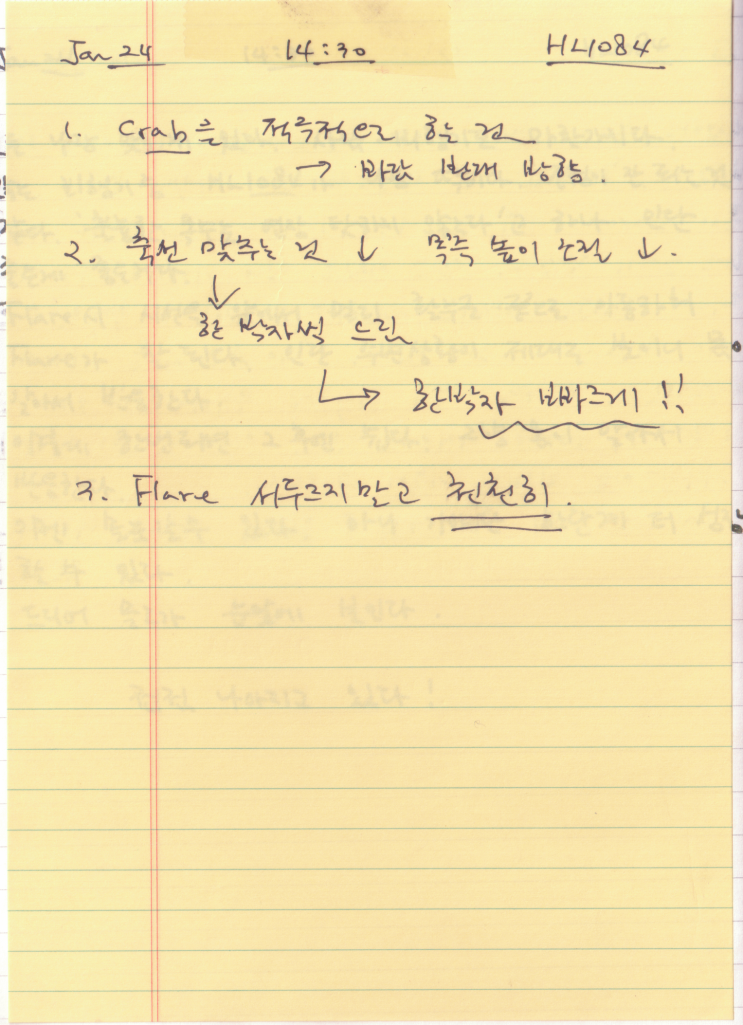 Jan 24 14:30 HL1084
1. Crab을 적극적으로 하는 것
→ 바람 반대 방향.
2. 축선 맞추는 것 ↓ 목측 높이 조절 ↓.
↓
한 박자씩 느림
→ 한박자 빠르게!!
3. Flare 서두르지말고 천천히.